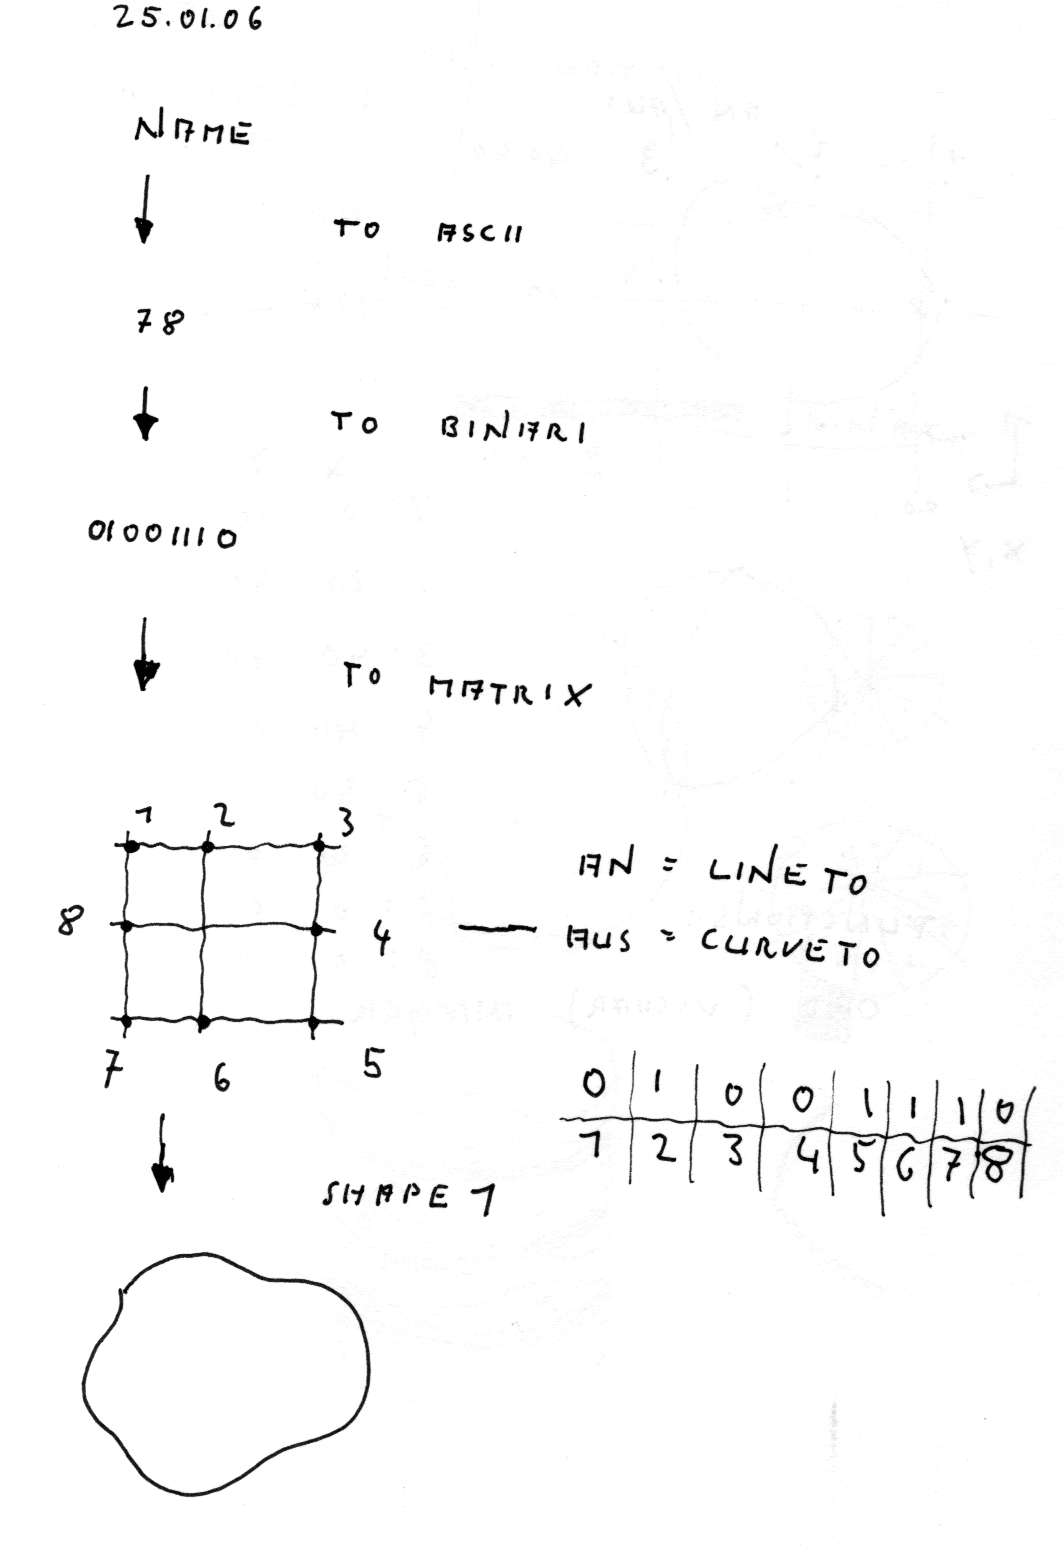 25.01.06
NAME
TO ASCII
78
TO BINARI
01001110
TO MATRIX
1 2 3
8 4
7 6 5
AN = LINE TO
AUS = CURVE TO
0 1 0 0 1 1 1 0
1 2 3 4 5 6 7 8
SHAPE 1